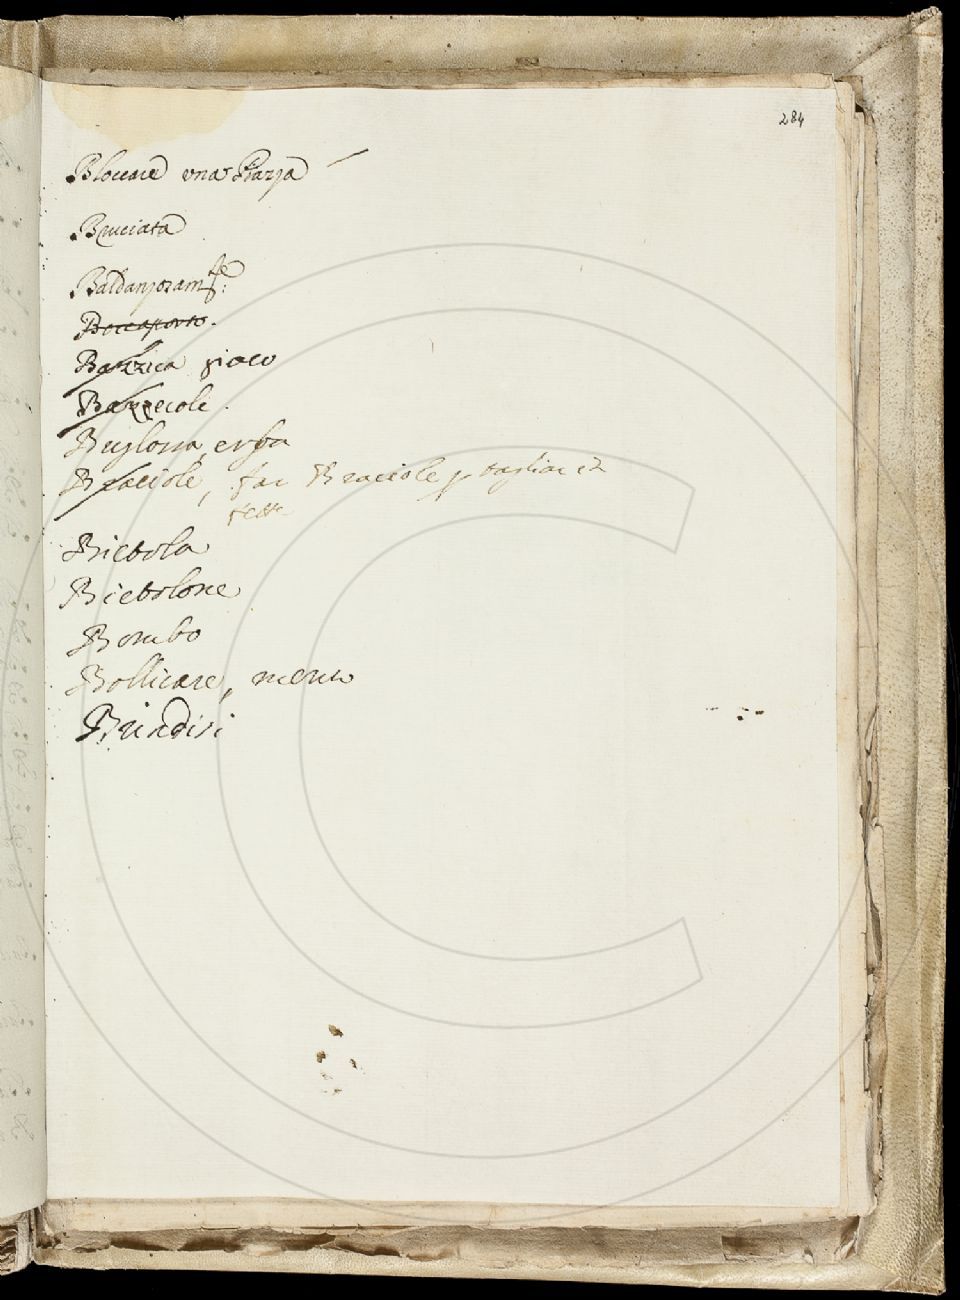 284
Bloccare una Piazza
Bruciata
Baldanzosam.te
Boccaporto.
Bazzica giuoco
Bazzecole.
Buglossa, erba
Braciole, far Braciole p tagliar in
Bietola
Bietolone
Bombo
Bollicare,
Brindisi